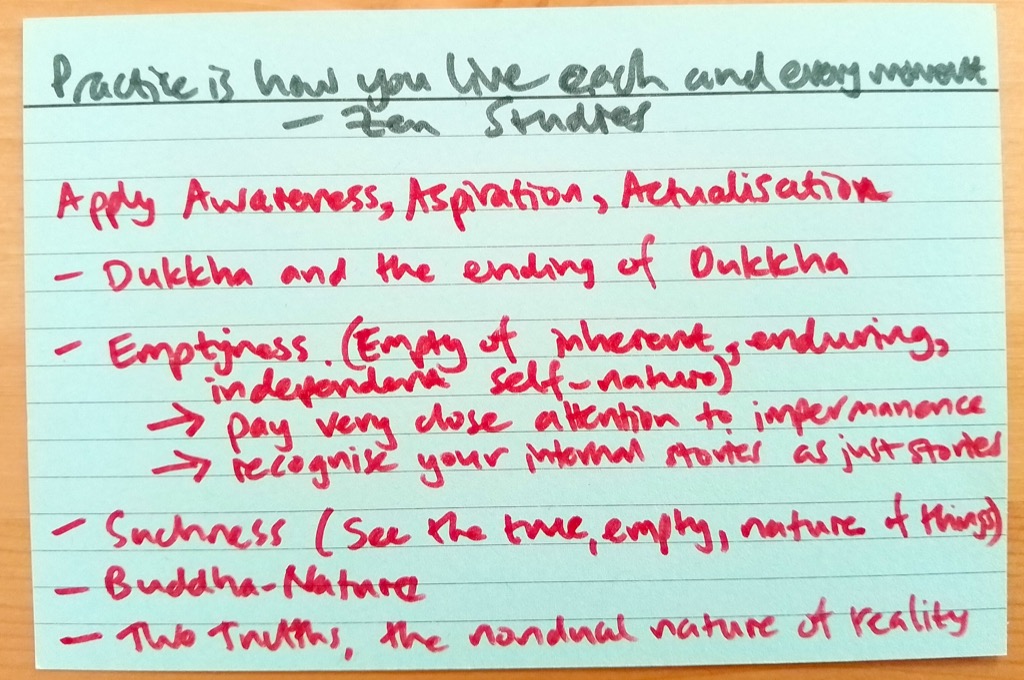 Practice is how you live each and every moment
- Zen Studies
Apply Awareness, Aspiration, Actualisation
- Dukkha and the ending of Dukkha
- Emptyness. (Empty of inherent, enduring,
independent self-nature)
→ pay very close attention to impermanence
→ recognise your internal stories as just stories
- Suchness (See the true, empty, nature of things)
- Buddha-Nature
- Two Truths, the nondual nature of reality